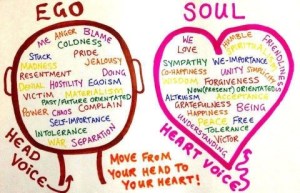 EGO
ANGER BLAME
ME
COLDNESS
STACK PRIDE
MADNESS JEALOUSY
RESENTMENT DOING
DENIAL HOSTILITY EGOISM
VICTIM MATERIALISM
PAST/FUTURE ORIENTATED
POWER CHAOS COMPLAIN
SELF-IMPORTANCE
INTOLERANCE
WAR SEPARATION
HEAD VOICE
SOUL
WE HUMBLE FRIENDLINESS
LOVE SPIRITUALISM
SYMPATHY WE-IMPORTANCE
CO-HAPPINESS UNITY SIMPLICITY
WISDOM FORGIVENESS
NOW(PRESENT)ORIENTATED US
ALTRUISM ACCEPTANCE
GRATEFULNESS BEING
HAPPINESS
PEACE FREE
TOLERANCE
UNDERSTANDING VICTOR
HEART VOICE
MOVE FROM
YOUR HEAD TO
YOUR HEART!